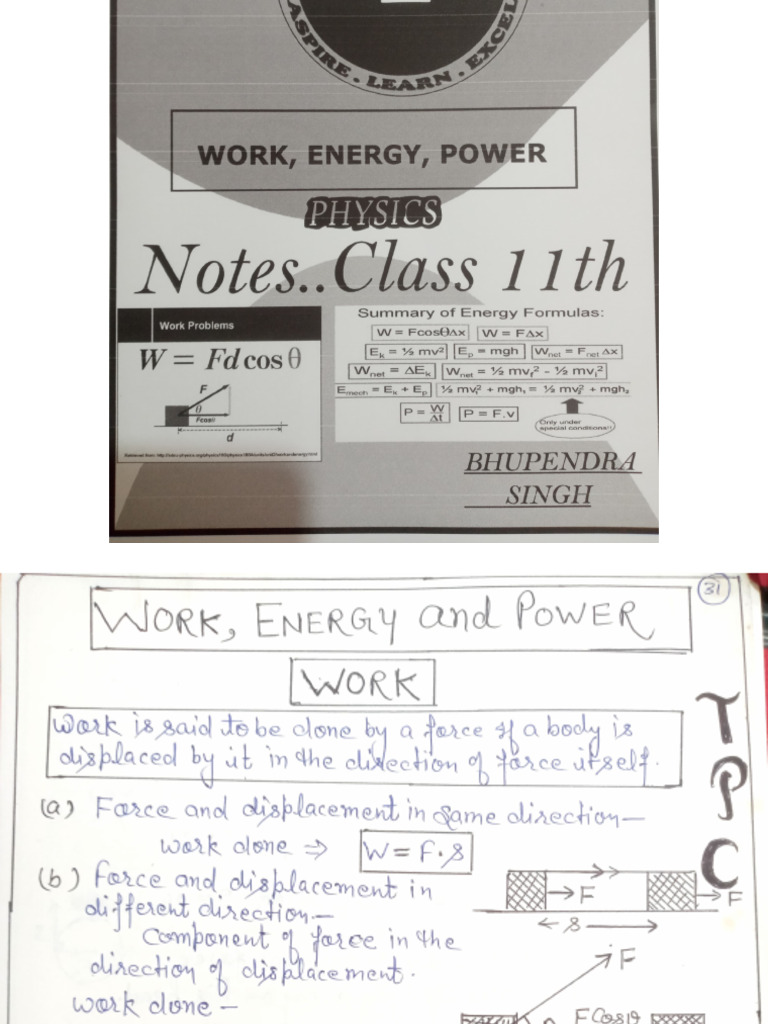 ASPIRE . LEARN . EXCEL
WORK, ENERGY, POWER
PHYSICS
Notes..Class 11th
Work Problems
W = Fd cos θ
F
θ
Fcosθ
d
Summary of Energy Formulas:
W = FcosθΔx W = FΔx
Ek = ½ mv² Ep = mgh Wnet = Fnet Δx
Wnet = ΔEk Wnet = ½ mvf² - ½ mvi²
Emech = Ek + Ep ½ mv₁² + mgh₁ = ½ mv₂² + mgh₂
P = W/Δt P = F.v
Only under
special conditions!!
BHUPENDRA
SINGH
31
WORK, ENERGY and POWER
WORK
Work is said to be done by a force if a body is
displaced by it in the direction of force itself.
TPC
(a) Force and displacement in same direction—
work done ⇒ W = F·s
(b) Force and displacement in
different direction—
Component of force in the
direction of displacement.
work done —
F
F
s
F
FCosθ